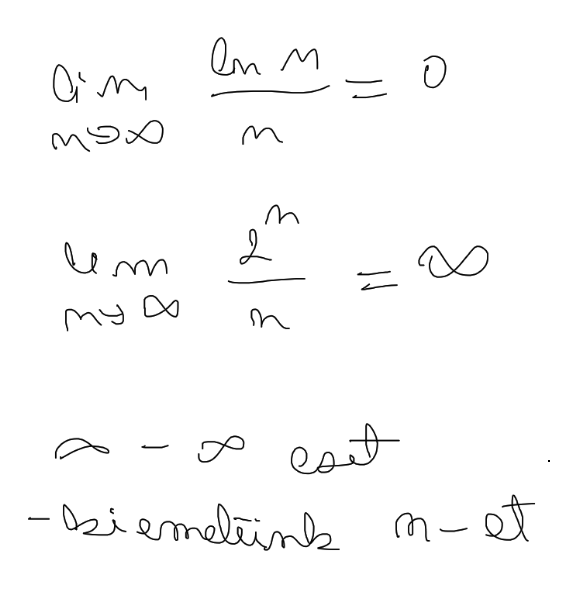 lim ln n / n = 0
n→∞
lim 2^n / n = ∞
n→∞
∞ - ∞ eset
- kiemelünk n-et